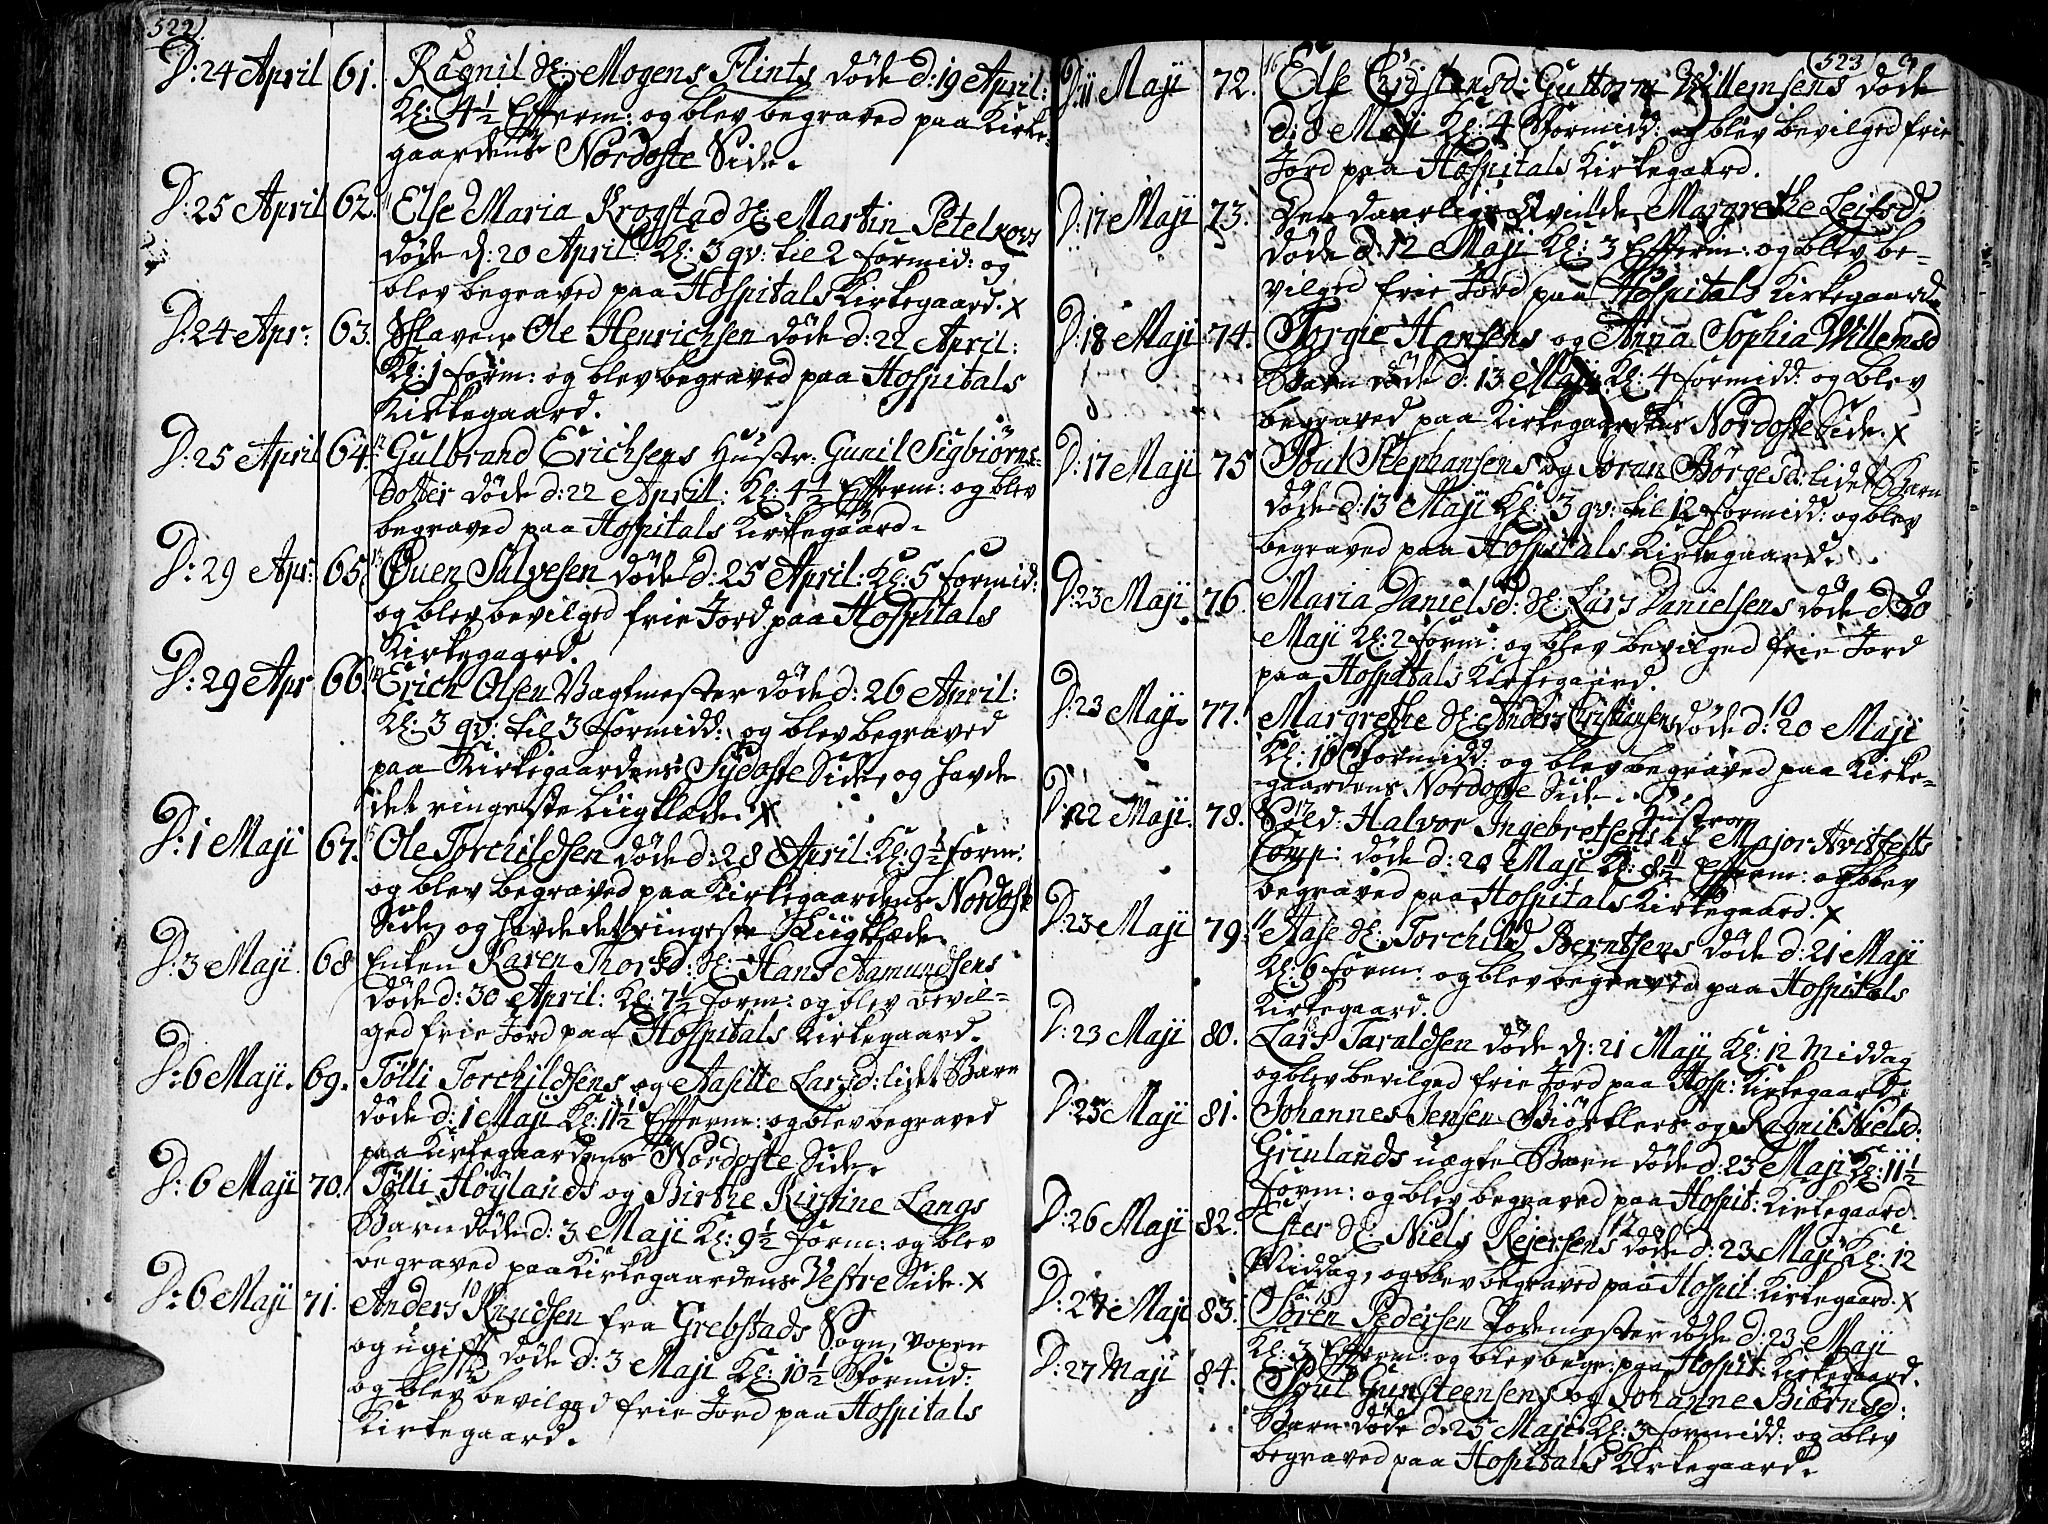 522.
D: 24 April 61. Ragnil  Mogens Flints døde d: 19 April:
Kl: 4½ Efterm: og blev begraved paa Kirke-
gaardens Nordoste Side.
D: 25 April 62. Else Maria Krogstad  Martin Petelkows
døde d: 20 April: Kl: 3 qv: til 2 formid: og
blev begraved paa Hospitals Kirkegaard. x
D: 24 Apr: 63. Slaven Ole Henrichsen døde d: 22 April:
Kl: 1 form: og blev begraved paa Hospitals
Kirkegaard.
D: 25 April 64. Gulbrand Erichsens Hustr: Gunil Sigbiørns-
Dotter døde d: 22 April: Kl: 4½ Efterm: og blev
begraved paa Hospitals Kirkegaard.
D: 29 Apr: 65. Ouen Salvesen døde d: 25 April: Kl: 5 formid:
og blev bevilged frie Jord paa Hospitals
Kirkegaard.
D: 29 Apr 66. Erich Olsen Vagtmester døde d: 26 April:
Kl: 3 qv: til 3 formidd: og blev begraved
paa Kirkegaardens Sydoste Side, og havde
det ringeste Liigklæde. x
D: 1 Maji 67. Ole Torchildsen døde d: 28 April: Kl: 9½ form:
og blev begraved paa Kirkegaardens Nordoste
Side, og havde det ringeste Liigklæde.
D: 3 Maji. 68 Enken Karen Thorsd:  Hans Aamundsens
døde d: 30 April: Kl: 7½ form: og blev bevil-
ged frie Jord paa Hospitals Kirkegaard.
D: 6 Maji. 69. Tølli Torchildsens og Aasille Larsd: lidet Barn
døde d: 1 Maji Kl: 11½ Efterm: og blev begraved
paa Kirkegaardens Nordoste Side.
D: 6 Maji 70. Tølli Høylands og Birthe Kirstine Langs
Barn døde d: 3 Maji Kl: 9½ form: og blev
begraved paa Kirkegaardens Vestre Side. x
D: 6 Maji 71. Anders Knudsen fra Grebstads Sogn, voxen
og ugift døde d: 3 Maji Kl: 10½ Formid:
og blev bevilged frie Jord paa Hospitals
Kirkegaard.
523
D: 11 Maji 72. Else Christensd: Guttorm Willemsens døde
d: 8 Maji Kl: 4 Formidd: og blev bevilged frie
Jord paa Hospitals Kirkegaard.
D: 17 Maji 73. Den daarlige Qvinde Margrethe Leifsd:
døde d: 12 Maji Kl: 3 Efterm: og blev be-
vilged frie Jord paa Hospitals Kirkegaard.
D: 18 Maji 74. Torgie Hansens og Anna Sophia Willemsd
Barn døde d: 13 Maji Kl: 4 formidd: og blev
begraved paa Kirkegaardens Nordoste Side. x
D: 17 Maji 75 Poul Stephansens og Joran Børgesd: lidet Barn
døde d: 13 Maji Kl: 3 qv: til 12 formidd: og blev
begraved paa Hospitals Kirkegaard.
D: 23 Maji 76. Maria Danielsd:  Lars Danielsens døde d: 20
Maji Kl: 2 form: og blev bevilged frie Jord
paa Hospitals Kirkegaard.
D: 23 Maji. 77. Margrethe  Anders Christiansens døde d: 20 Maji
Kl: 10 Formidd: og blev begraved paa Kirke-
gaardens Nordoste Side.
D: 22 Maji. 78. Sold: Halvor Ingebretsens Hustroe af Major Hvitfelts
Comp: døde d: 20 Maji Kl: 8½ Efterm: og blev
begraved paa Hospitals Kirkegaard. x
D: 23 Maji 79. Aase  Torchild Berntsens døde d: 21 Maji
Kl: 6 form: og blev begraved paa Hospitals
Kirkegaard.
D: 23 Maji 80. Lars Taraldsen døde d: 21 Maji Kl: 12 Middag
og blev bevilged frie Jord paa Hosp: Kirkegaard.
D: 25 Maji 81. Johannes Jensen Biørklers og Ragnil Nielsd:
Grinlands uægte Barn døde d: 23 Maji Kl: 11½
form: og blev begraved paa Hospit: Kirkegaard.
D: 26 Maji 82. Ester  Niels Rejersens døde d: 23 Maji Kl: 12
Middag, og blev begraved paa Hospit: Kirkegaard. x
D: 27 Maji 83. Søren Pedersen Podemester døde d: 23 Maji
Kl: 3 Efterm: og blev begr: paa Hospit: Kirkegaard.
D: 27 Maji 84. Poul Gunsteensens og Johanne Biørnsd:
Barn døde d: 25 Maji Kl: 3 formidd: og blev
begraved paa Hospitals Kirkegaard.